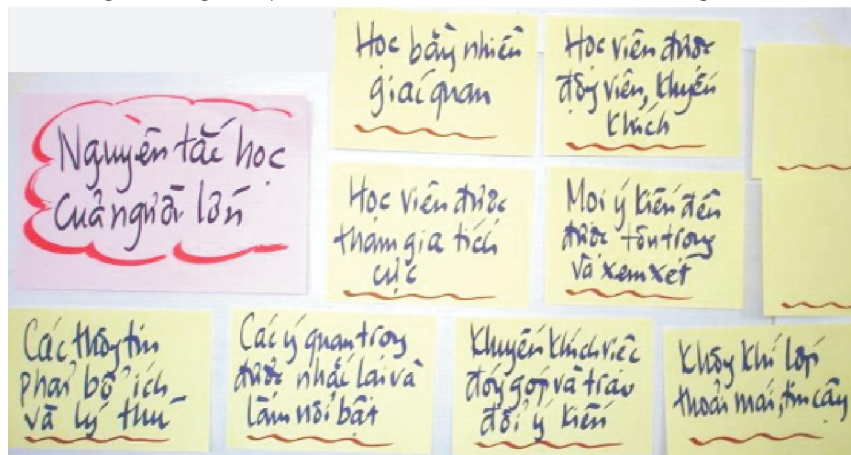 Học bằng nhiều
giác quan
Học viên được
động viên, khuyến
khích
Nguyên tắc học
của người lớn
Học viên được
tham gia tích
cực
Mọi ý kiến đều
được tôn trọng
và xem xét
Các thông tin
phải bổ ích
và lý thú
Các ý quan trọng
được nhắc lại và
làm nổi bật
Khuyến khích việc
đóng góp và trao
đổi ý kiến
Không khí lớp
thoải mái, tin cậy